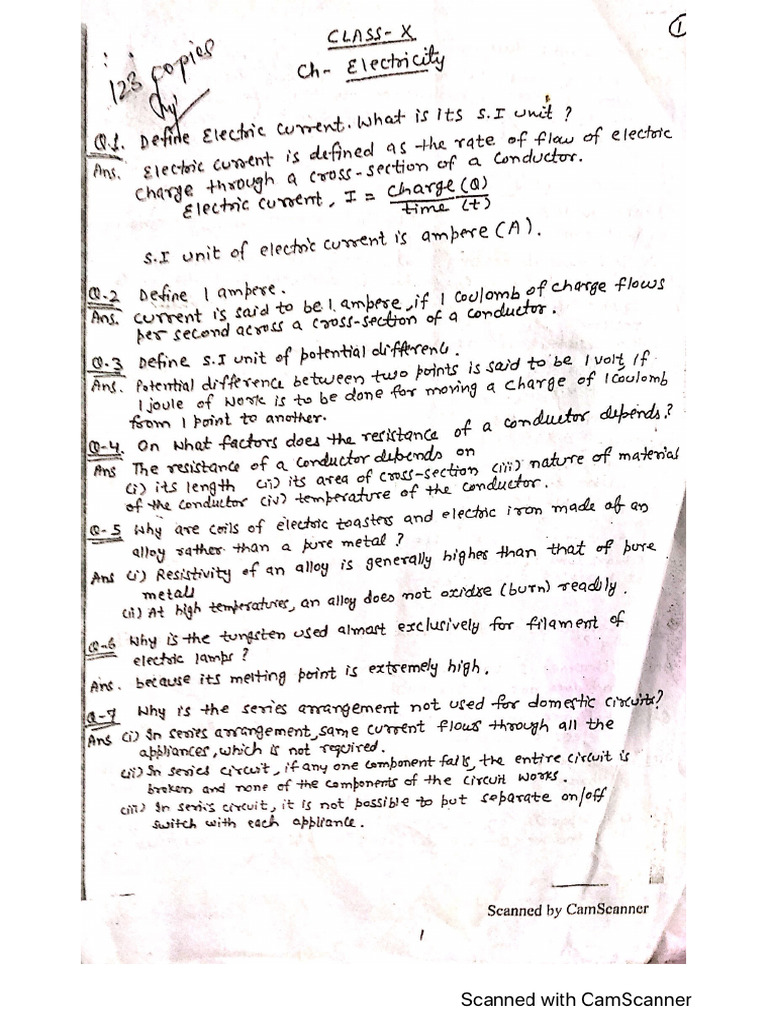 1
CLASS-X
Ch- Electricity
123 copies
Q.1. Define Electric current. What is its S.I unit ?
Ans. Electric current is defined as the rate of flow of electric
charge through a cross-section of a conductor.
Electric current, I = charge (Q)
time (t)
S.I unit of electric current is ampere (A).
Q-2 Define 1 ampere.
Ans. current is said to be 1 ampere, if 1 coulomb of charge flows
per second across a cross-section of a conductor.
Q-3 Define S.I unit of potential differenc.
Ans. Potential difference between two points is said to be 1 volt, if
1 joule of work is to be done for moving a charge of 1 coulomb
from 1 point to another.
Q-4. On what factors does the resistance of a conductor depends?
Ans The resistance of a conductor depends on
(i) its length (ii) its area of cross-section (iii) nature of material
of the conductor (iv) temperature of the conductor.
Q-5 Why are coils of electric toasters and electric iron made of an
alloy rather than a pure metal ?
Ans (i) Resistivity of an alloy is generally higher than that of pure
metals
(ii) At high temperatures, an alloy does not oxidise (burn) readily.
Q-6 Why is the tungsten used almost exclusively for filament of
electric lamps ?
Ans. because its melting point is extremely high.
Q-7 Why is the series arrangement not used for domestic circuits?
Ans (i) In series arrangement, same current flows through all the
appliances, which is not required.
(ii) In series circuit, if any one component fails, the entire circuit is
broken and none of the components of the circuit works.
(iii) In series circuit, it is not possible to put separate on/off
switch with each appliance.
Scanned by CamScanner
1
Scanned with CamScanner